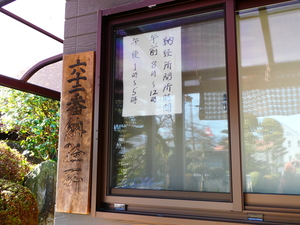 六十二番納経所
納経所開所時間
午前8時～12時
午後1時～5時